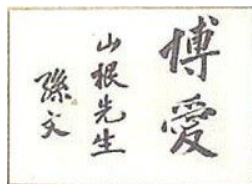 博愛
山根先生
孫文